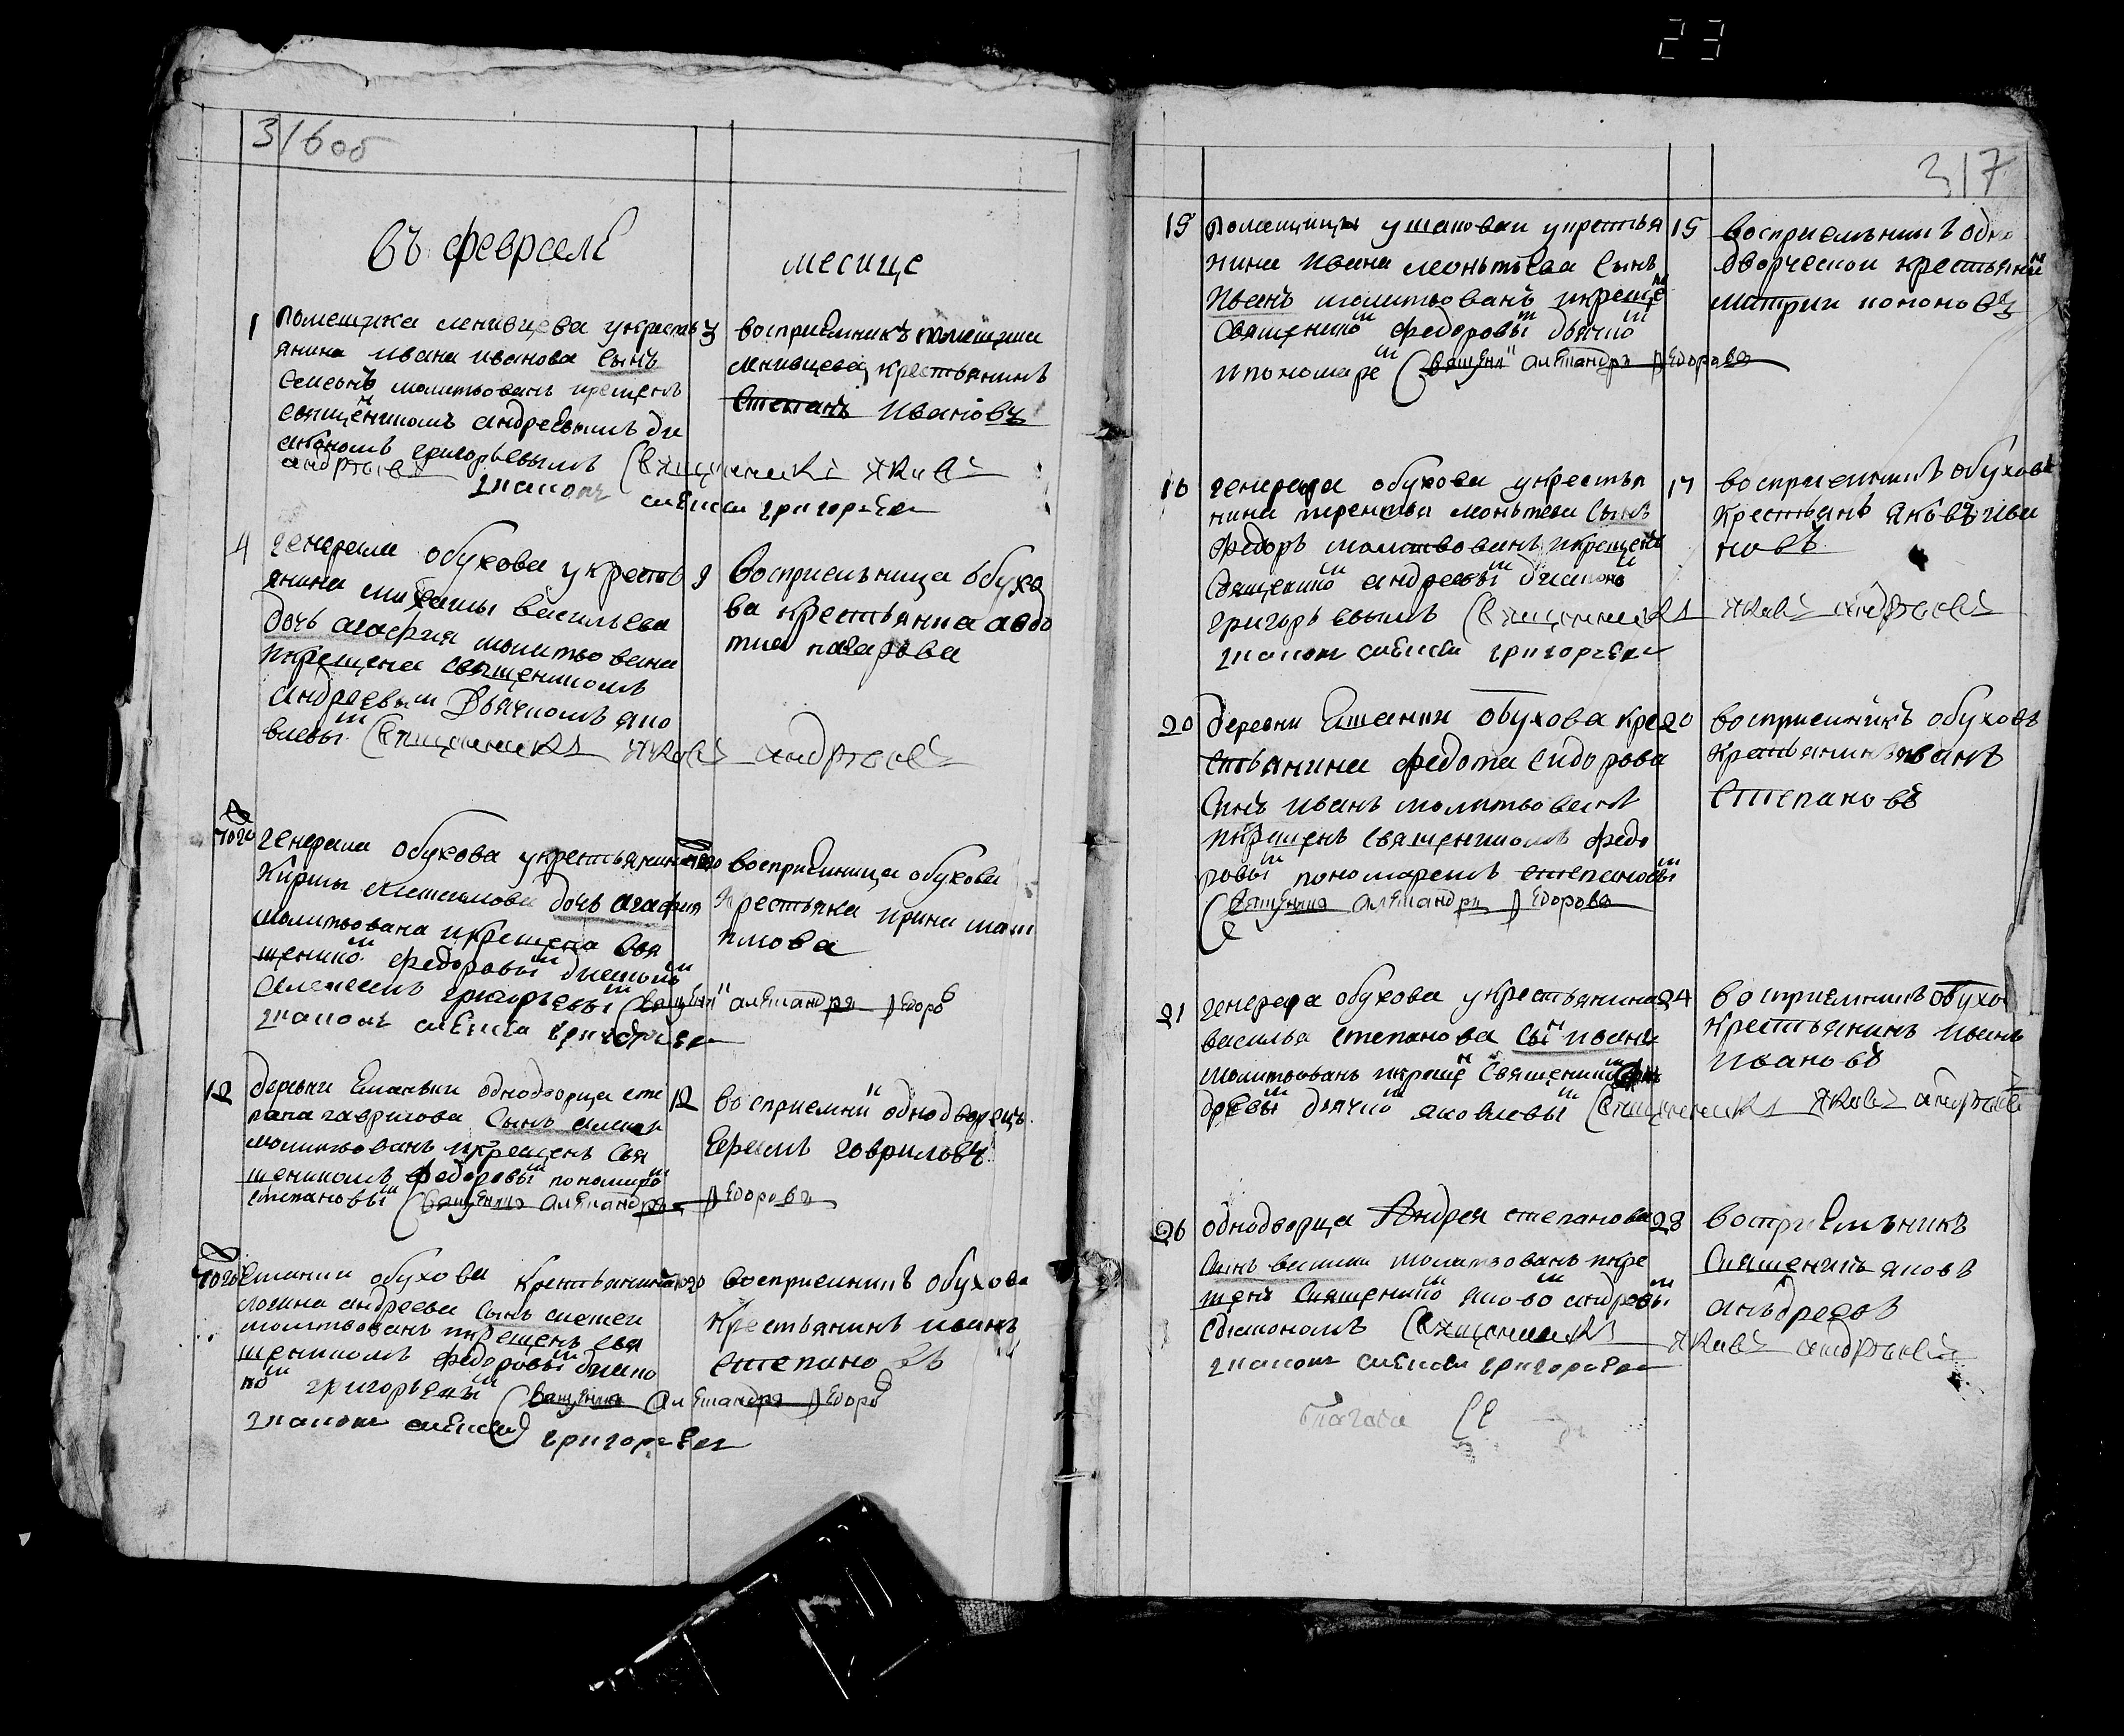 23
316об
въ феврале месице
1 помещика ленивцева укресть
янина ивана иванова сынъ
семенъ молитвованъ икрещенъ
священикомъ андреевымъ ди
акономъ григорьевымъ священникъ яковъ
андреевъ
диаконъ алексей григорьевъ
3 восприемникъ помещика
ленивцева крестьянинъ
степанъ ивановъ
4 генерала обухова укресть
янина михаилы васильева
дочь агафия молитвована
икрещена священикомъ
андреевым дьячкомъ яко
влевым священникъ яковъ андреевъ
9 восприемница обухо
ва крестьянка авдо
тиа назарова
генерала обухова укрестьянина
дочь агафия
молитвована икрещена свя
щенико федоровы диакономъ
алексеемъ григорьевы священникъ александръ федоровъ
диаконъ алексей григорьевъ
восприемница обухова
крестьянка ирина
12 деревни однодворца сте
пана гаврилова сынъ
молитвованъ икрещенъ свя
щеникомъ федоровы пономаро
степановы священникъ александръ федоровъ
12 восприемни однодворецъ
гавриловъ
обухова крестьянина
логина андреева сынъ алексей
молитвованъ икрещенъ свя
щеникомъ федоровы диако
но григорьевы священникъ александръ федоровъ
диаконъ алексей григорьевъ
восприемникъ обухова
крестьянинъ иванъ
степановъ
317
15 помещицы ушаковаи укрестья
нина ивана леонтьева сынъ
иванъ молитвованъ икреще
священико федоровы дьячко
ипономаре священи александръ федоровъ
15 восприемъникъ одно
дворческои крестьяни
митрии
16 генерала обухова укрестья
нина терентья леонтева сынъ
федоръ молитвованъ икрещенъ
священико андреевы диаконо
григорьевымъ священникъ яковъ андреевъ
диаконъ алексей григорьевъ
17 восприемникъ обухова
крестьянъ яковъ ива
новъ
20 деревни обухова кре
стьянина федота сидорова
синъ иванъ молитвованъ
икрещенъ священикомъ федо
ровы пономаремъ степановы
священникъ александръ федоровъ
20 восприемникъ обуховъ
крестьянинъ иванъ
степановъ
21 генерала обухова укрестьянина
василья степанова сы иванъ
молитвованъ икреще священико ан
древы дьячко яковлевы священникъ яковъ андреевъ
24 восприемникъ обухо
крестьянинъ иванъ
ивановъ
26 однодворца андрея степанова
синъ василии молитвованъ икре
щенъ священико яково андревы
сдиакономъ священникъ яковъ андреевъ
диаконъ алексей григорьевъ
28 восприемъникъ
священикъ яковъ
анъдреевъ